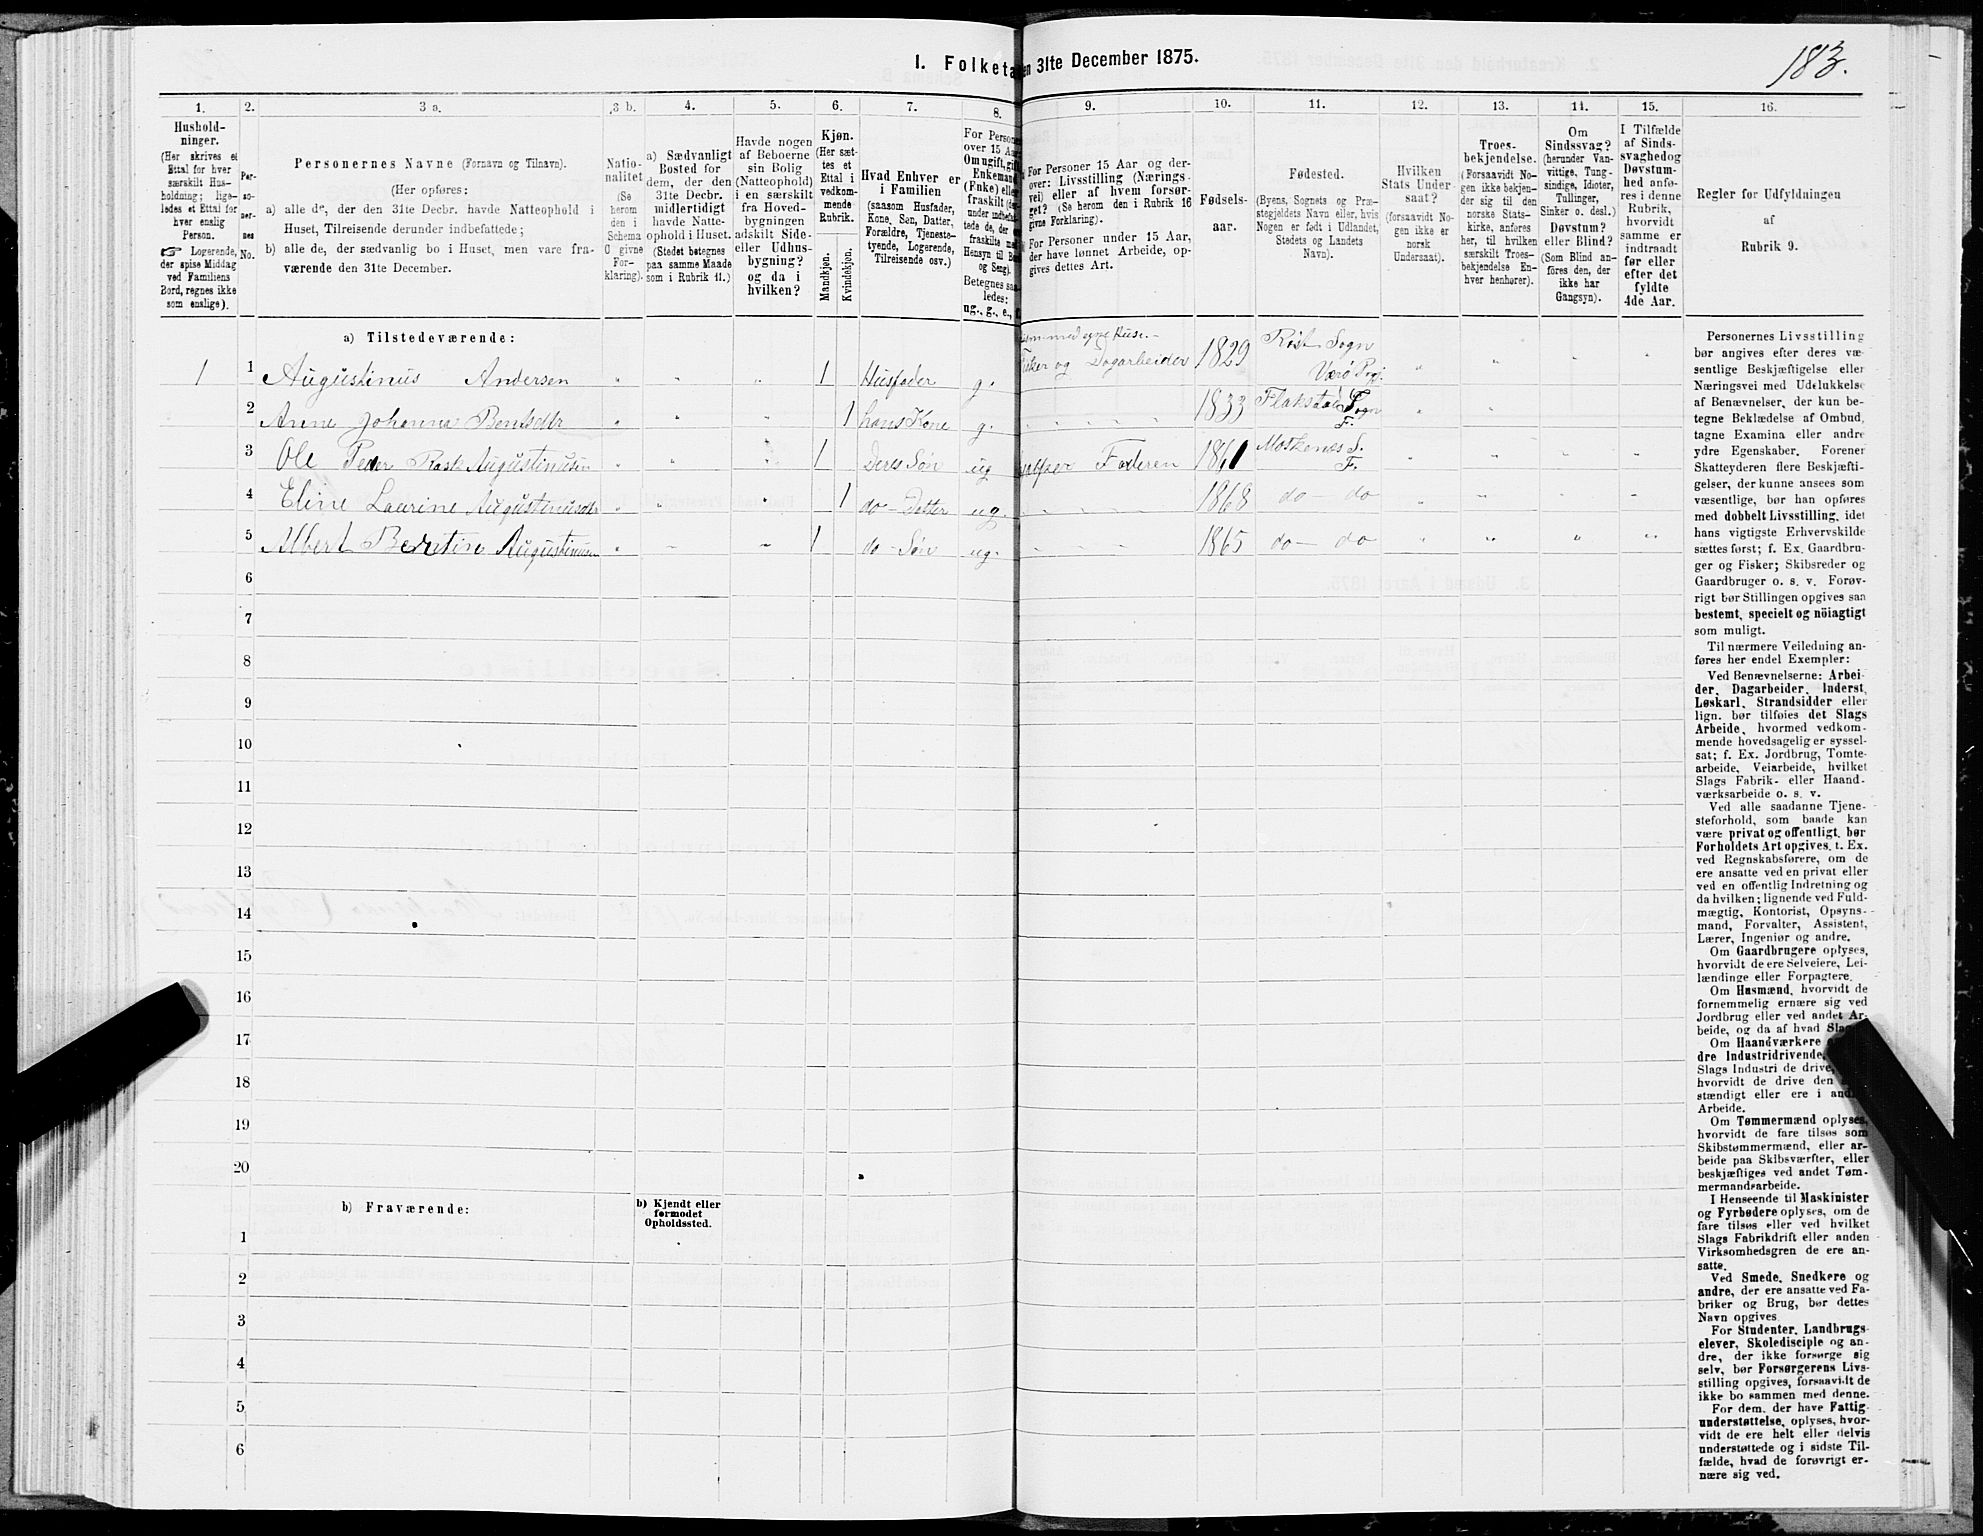 I. Folketa en 31te December 1875.
183.
1. 2. 3 a. 3 b. 4. 5. 6. 7. 8. 9. 10. 11. 12. 13. 14. 15. 16.
Hushold-
ninger.
(Her skrives et
Ettal for hver
særskilt Hus-
holdning; lige-
ledes et Ettal for
hver enslig
Person.
☞ Logerende,
der spise Middag
ved Familiens
Bord, regnes ikke
som enslige).
Per-
so-
ner-
nes
No.
Personernes Navne (Fornavn og Tilnavn).
(Her opføres:
a) alle de, der den 31te Decbr. havde Natteophold i
Huset, Tilreisende derunder indbefattede;
b) alle de, der sædvanlig bo i Huset, men vare fra-
værende den 31te December.
Natio-
nalitet
(Se
herom
den i
Schema
C givne
For-
klaring).
a) Sædvanligt
Bosted for
dem, der den
31te Decbr.
midlertidigt
havde Natte-
ophold i Huset.
(Stedet betegnes
paa samme Maade
som i Rubrik 11.)
Havde nogen
af Beboerne
sin Bolig
(Natteophold)
i en særskilt
fra Hoved-
bygningen
adskilt Side-
eller Udhus-
bygning?
og da i
hvilken?
Kjøn.
(Her sæt-
tes et
Ettal i
vedkom-
mende
Rubrik.
Mandkjøn.
Kvindekjøn.
Hvad Enhver er
i Familien
(saasom Husfader,
Kone, Søn, Datter,
Forældre, Tjeneste-
tyende, Logerende,
Tilreisende osv.)
For Persone
over 15 Aar
Om ugift, gift
Enkemand
(Enke) elle
fraskilt
under indbefat-
tede de, der
fraskilte me
Hensyn til Bo
og Seng).
Betegnes saa-
ledes:
ug., g., e., f.
For Personer 15 Aar og der-
over: Livsstilling (Nærings-
vei) eller af hvem forsør-
get? (Se herom den i Rubrik 16
givne Forklaring).
For Personer under 15 Aar,
der have lønnet Arbeide, op-
gives dettes Art.
Fødsels-
aar.
Fødested.
(Byens, Sognets og Præ-
stegjeldets Navn eller, hvis
Nogen er født i Udlandet,
Stedets og Landets
Navn).
Hvilken
Stats Under-
saat?
(forsaavidt No-
gen ikke er
norsk
Undersaat).
Troes-
bekjendelse.
(Forsaavidt No-
gen ikke bekjen-
der sig til den
norske Stats-
kirke, anføres
her, til hvilken
særskilt Troes-
bekjendelse En-
hver henhører).
Om
Sindssvag?
(herunder Van-
vittige, Tung-
sindige, Idioter,
Tullinger,
Sinker o. desl.)
Døvstum?
eller Blind?
(Som Blind an-
føres den, der
ikke har
Gangsyn).
I Tilfælde
af Sinds-
svaghed og
Døvstum-
hed anfø-
res i denne
Rubrik,
hvorvidt
samme er
indtraadt
før eller
efter det
fyldte
4de Aar.
Regler for Udfyldningen
af
Rubrik 9.
a) Tilstedeværende:
med egne Huse.
1 1 Augustinus Andersen " " " 1 Husfader g. isker og Dagarbeider 1829 Røst Sogn Værø Pgj. " " " "
2 Anne Johanna Bentsdtr " " " 1 hans Kone g. " " " " 1833 Flakstad Sogn F. " "
3 Ole Peder Rask Augustinusen " " " 1 Deres Søn ug hjælper Faderen 1861 Moskenes S. F. " " " "
4 Eline Laurine Augustinusdtr " " " 1 do – Datter ug. " " " " 1868 do – do " " " "
5 Albert Berntin Augustinusen " " " 1 do – Søn ug. " " " 1865 do – do " " " "
6
7
8
9
10
11
12
13
14
15
16
17
18
19
20
b) Fraværende:
b) Kjendt eller
formodet
Opholdssted.
1
2
3
4
5
6
Personernes Livsstilling
bør angives efter deres væ-
sentlige Beskjæftigelse eller
Næringsvei med Udelukkelse
af Benævnelser, der kun be-
tegne Beklædelse af Ombud,
tagne Examina eller andre
ydre Egenskaber. Forener
Skatteyderen flere Beskjæfti-
gelser, der kunne ansees som
væsentlige, bør han opføres
med dobbelt Livsstilling, idet
hans vigtigste Erhvervskilde
sættes først; f. Ex. Gaardbru-
ger og Fisker; Skibsreder og
Gaardbruger o. s. v. Forøv-
rigt bør Stillingen opgives saa
bestemt, specielt og nöiagtigt
som muligt.
Til nærmere Veiledning an-
føres her endel Exempler:
Ved Benævnelserne: Arbei-
der, Dagarbeider, Inderst,
Løskarl, Strandsidder eller
lign. bør tilføies det Slags
Arbeide, hvormed vedkom-
mende hovedsagelig er syssel-
sat; f. Ex. Jordbrug, Tomte-
arbeide, Veiarbeide, hvilket
Slags Fabrik- eller Haand-
værksarbeide o. s. v.
Ved alle saadanne Tjene-
steforhold, som baade kan
være privat og offentligt, bør
Forholdets Art opgives, t. Ex.
ved Regnskabsførere, om de
ere ansatte ved en privat eller
ved en offentlig Indretning og
da hvilken; lignende ved Fuld-
mægtig, Kontorist, Opsyns-
mand, Forvalter, Assistent,
Lærer, Ingeniør og andre.
Om Gaardbrugere oplyses,
hvorvidt de ere Selveiere, Lei-
lændinge eller Forpagtere.
Om Husmænd, hvorvidt de
fornemmelig ernære sig ved
Jordbrug eller ved andet Ar-
beide, og da af hvad Slag
Om Haandværkere
dre Industridrivende,
Slags Industri de drive,
hvorvidt de drive den
stændigt eller ere i and
Arbeide.
Om Tømmermænd oplyses,
hvorvidt de fare tilsøs som
Skibstømmermænd, eller ar-
beide paa Skibsværfter, eller
beskjæftiges ved andet Tøm-
mermandsarbeide.
I Henseende til Maskinister
og Fyrbødere oplyses, om de
fare tilsøs eller ved hvilket
Slags Fabrikdrift eller anden
Virksomhedsgren de ere an-
satte.
Ved Smede, Snedkere og
andre, der ere ansatte ved Fa-
briker og Brug, bør dettes
Navn opgives
For Studenter, Landbrugs-
elever, Skoledisciple og an-
dre, der ikke forsørge sig
selv, bør Forsørgerens Livs-
stilling opgives, forsaavidt de
ikke bo sammen med denne.
For dem, der have Fattig-
understøttelse, oplyses, hvor-
vidt de ere helt eller delvis
understøttede og i sidste Til-
fælde, hvad de forøvrigt er-
nære sig ved.